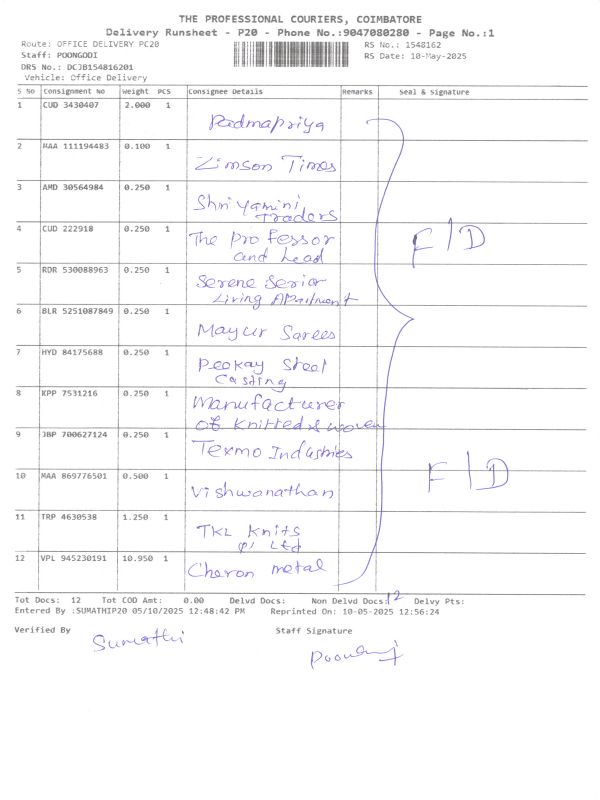 THE PROFESSIONAL COURIERS, COIMBATORE
Delivery Runsheet - P20 - Phone No.:9047080280 - Page No.:1
Route: OFFICE DELIVERY PC20 RS No.: 1548162
Staff: POONGODI RS Date: 10-May-2025
DRS No.: DCJB154816201
Vehicle: Office Delivery
S No Consignment No Weight PCS Consignee Details Remarks Seal & Signature
1 CUD 3430407 2.000 1 Padmapriya
2 MAA 111194483 0.100 1 Zimson Times
3 AMD 30564984 0.250 1 Shri Yamini
Traders
4 CUD 222918 0.250 1 The professor
and head
F/D
5 RDR 530088963 0.250 1 Serene Serior
Living APartment
6 BLR 5251087849 0.250 1 Mayur Sarees
7 HYD 84175688 0.250 1 Peekay Steel
Casting
8 KPP 7531216 0.250 1 Manufacturer
Of knitted & woven
9 JBP 700627124 0.250 1 Texmo Industries
10 MAA 869776501 0.500 1 Vishwanathan
F/D
11 TRP 4630538 1.250 1 TKL Knits
P) Ltd
12 VPL 945230191 10.950 1 Cheron metal
Tot Docs: 12 Tot COD Amt: 0.00 Delvd Docs: Non Delvd Docs: 12 Delvy Pts:
Entered By :SUMATHIP20 05/10/2025 12:48:42 PM Reprinted On: 10-05-2025 12:56:24
Verified By Staff Signature
Sumathi